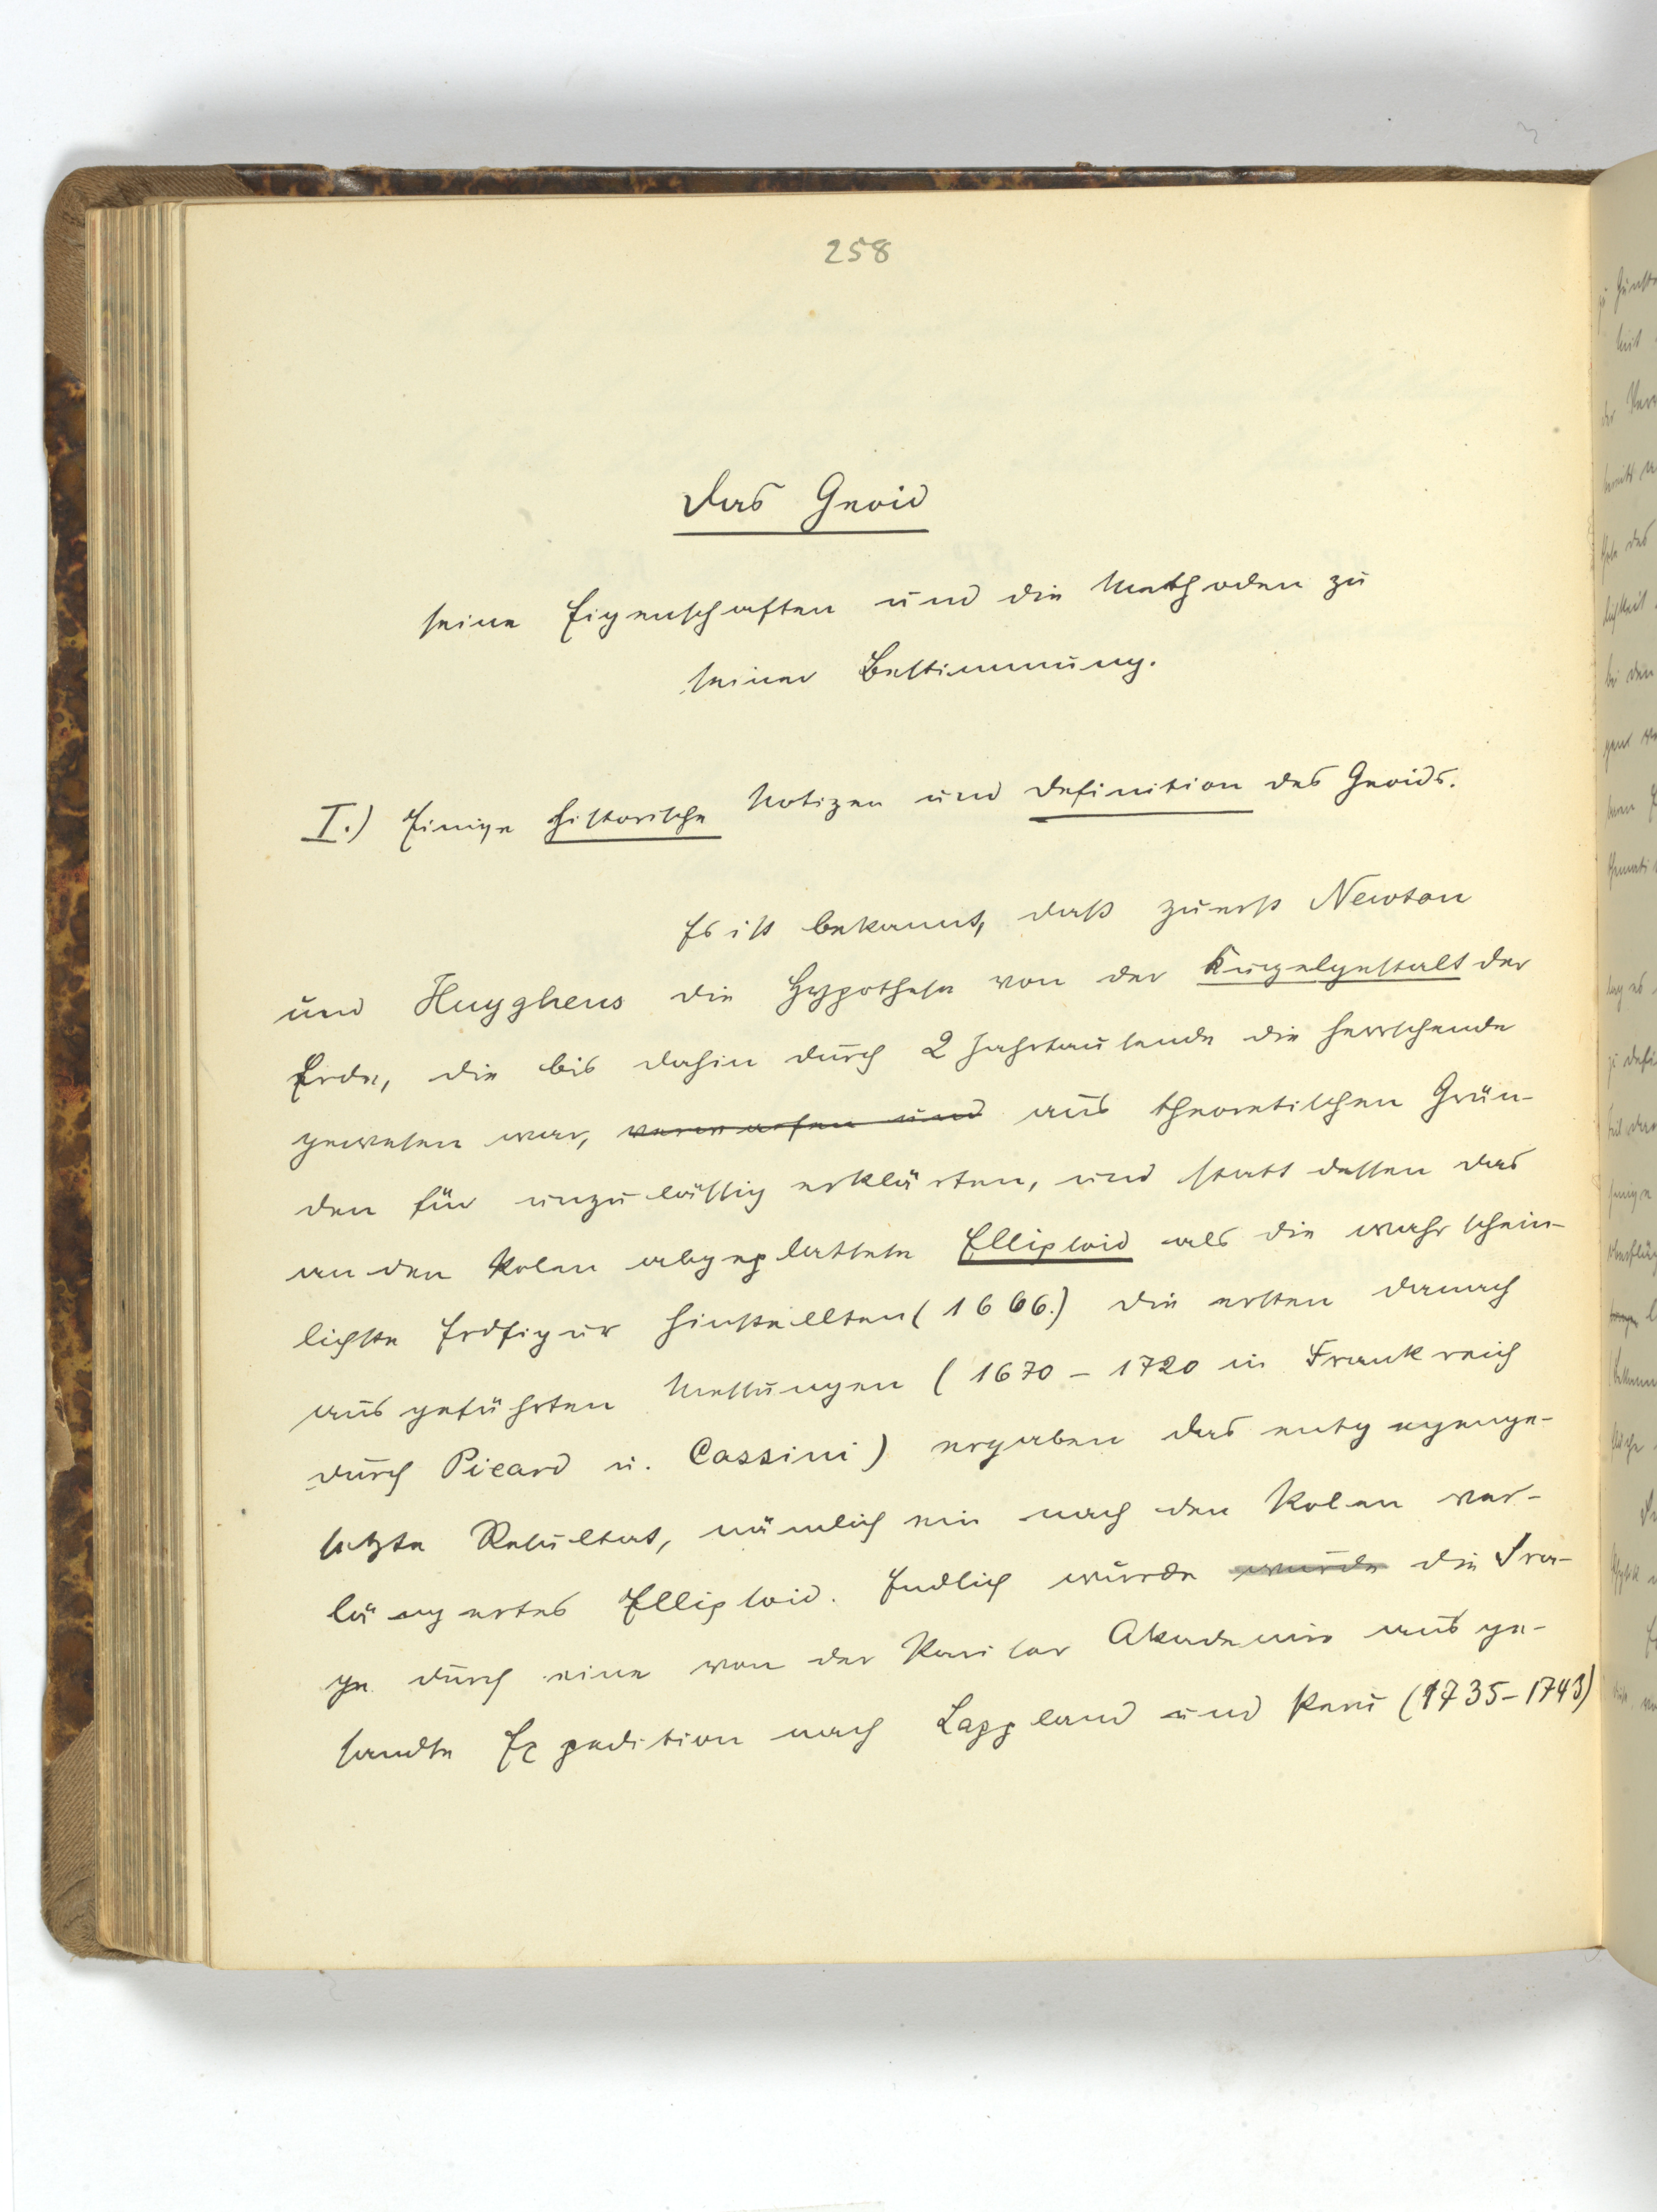 258
Das Geoid
seine Eigenschaften und die Methoden zu
seiner Bestimmung.
I.) Einige historische Notizen und Definition des Geoids.
Es ist bekannt, daß zuerst Newton
und Huyghens die Hypothese von der Kugelgestalt der
Erde, die bis dahin durch 2 Jahrtausende die herrschende
gewesen war, verworfen und aus theoretischen Grün-
den für unzulässig erklärten, und statt dessen das
an den Polen abgeplattete Ellipsoid als die wahrschein-
lichste Erdfigur hinstellten (1666.) die ersten danach
ausgeführten Messungen (1670 - 1720 in Frankreich
durch Picard u. Cassini) ergaben das entgegenge-
setzte Resultat, nämlich ein nach den Polen ver-
längertes Ellipsoid. Endlich wurde wurde die Fra-
ge durch eine von der Pariser Akademie ausge-
sandte Expedition nach Lappland und Peru (1735-1743)